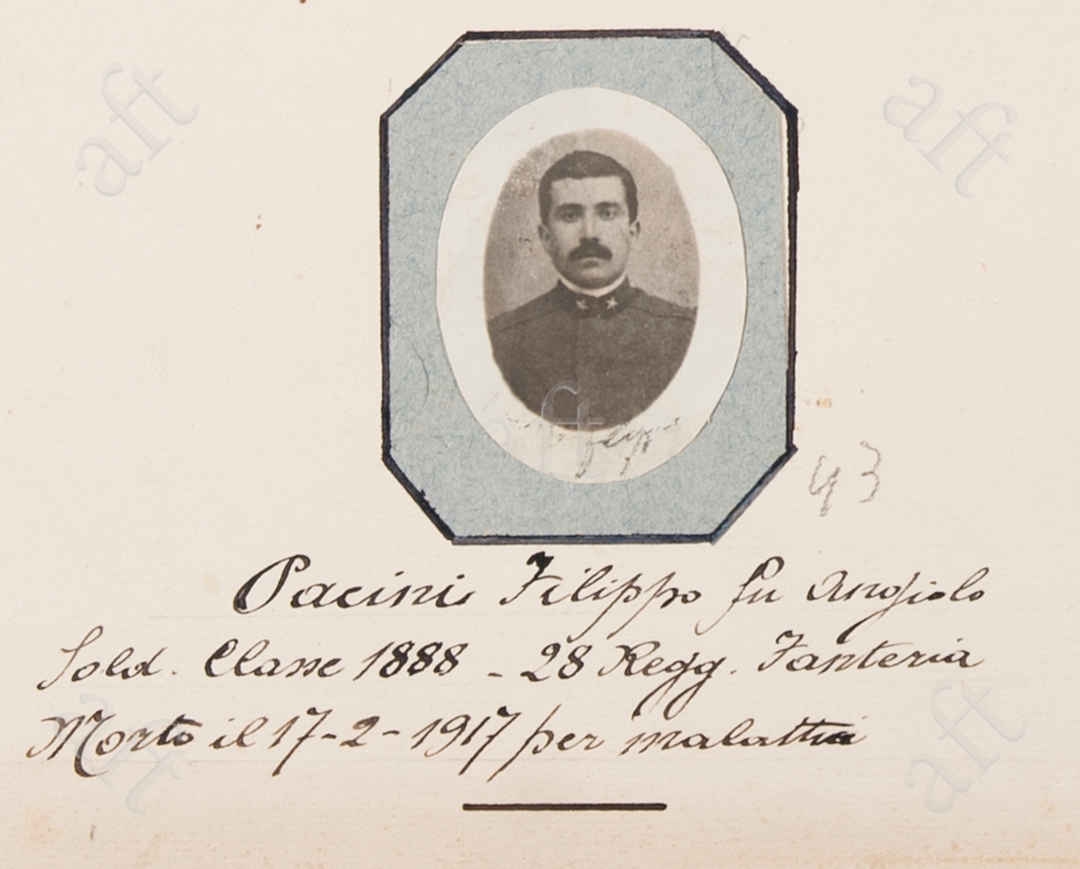 aft
aft
aft
43
Pacini Filippo fu Angiolo
Sold. Classe 1888 - 28 Regg. Fanteria
Morto il 17-2-1917 per malattia
aft
aft